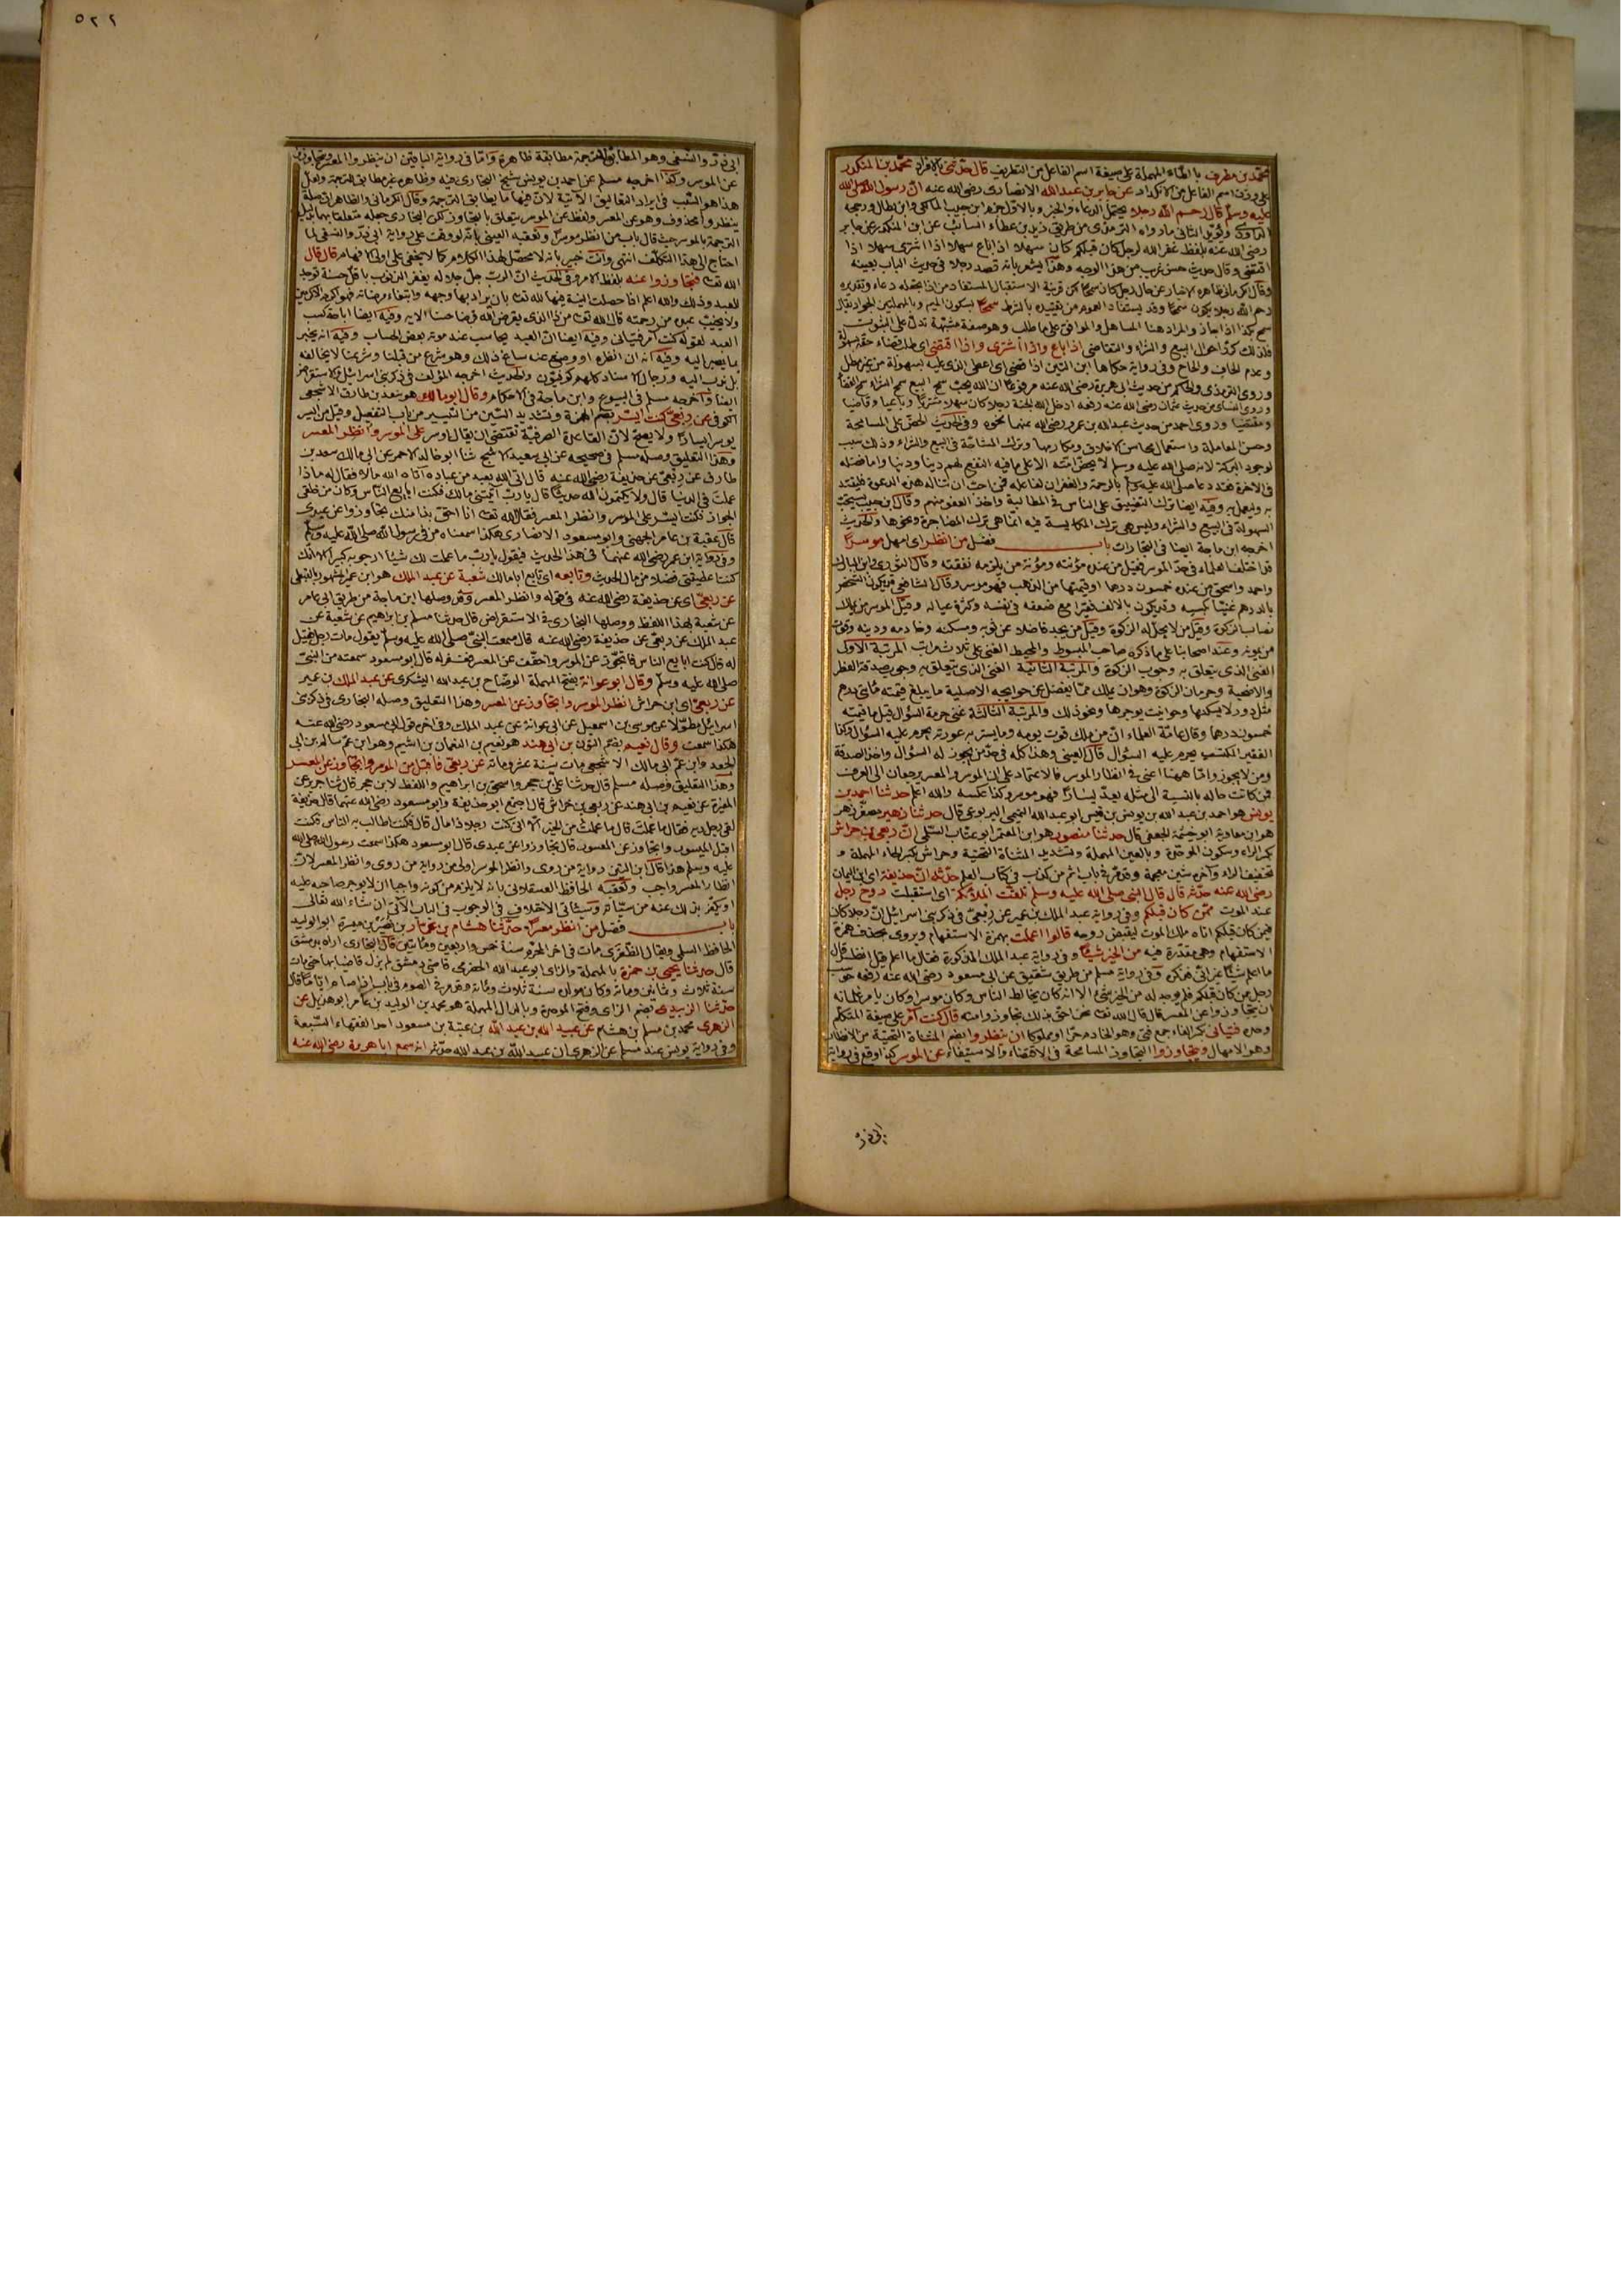 محمد بن مطرف بالطاء المهملة على صيغة اسم الفاعل من التطريف قال حدثني بالافراد محمد بن المنكدر
على وزن اسم الفاعل من الانكدار عن جابر بن عبد الله الانصاري رضي الله عنه ان رسول الله صلى الله
عليه وسلم قال رحم الله رجلا يحتمل الدعاء والخبر وبالاول جزم ابن حبيب المالكي وابن بطال ورجحه
الداودي ويؤيد الثاني ما رواه الترمذي من طريق زيد بن عطاء السائب عن ابن المنكدر عن جابر
رضي الله عنه بلفظ غفر الله لرجل كان قبلكم كان سهلا اذا باع سهلا اذا اشترى سهلا اذا
اقتضى وقال حديث حسن غريب من هذا الوجه وهذا يشعر بانه قصد رجلا في حديث الباب بعينه
وقال الكرماني ظاهره الاخبار عن حال رجل كان سمحا لكن قرينة الاستقبال المستفاد من اذا يجعله دعاء وتقديره
رحم الله رجلا يكون سمحا وقد يستفاد العموم من تقييده بالشرط سمحا بسكون الميم وبالمهملتين الجواد يقال
سمح بكذا اذا جاد والمراد هنا المساهل والموافق على ما طلب وهو صفة مشبهة تدل على الثبوت
فلذلك كرر احوال البيع والشراء والتقاضي اذا باع واذا اشترى واذا اقتضى اي طلب قضاء حقه بسهولة
وعدم الحاف والحاح وفي رواية حكاها ابن التين اذا قضى اي اعطى الذي عليه بسهولة من غير مطل
وروى الترمذي والحاكم من حديث ابي هريرة رضي الله عنه مرفوعا ان الله يحب سمح البيع سمح الشراء سمح القضاء
وروى النسائي من حديث عثمان رضي الله عنه رفعه ادخل الله الجنة رجلا كان سهلا مشتريا وبائعا وقاضيا
ومقتضيا وروى احمد من حديث عبد الله بن عمرو رضي الله عنهما نحوه وفي الحديث الحض على المسامحة
وحسن المعاملة واستعمال محاسن الاخلاق ومكارمها وترك المشاحة في البيع والشراء وذلك سبب
لوجود البركة لانه صلى الله عليه وسلم لا يحض امته الا على ما فيه النفع لهم دينا ودنيا واما فضله
في الاخرة فقد دعا صلى الله عليه وسلم بالرحمة والغفران لفاعله فمن احب ان تناله هذه الدعوة فليقتد
به وليعمل به وفيه ايضا ترك التضييق على الناس في المطالبة واخذ العفو منهم وقال ابن حبيب يستحب
السهولة في البيع والشراء وليس هي ترك المكايسة فيه انما هي ترك المضاجرة ونحوها والحديث
اخرجه ابن ماجة ايضا في التجارات باب فضل من انظر اي امهل موسرا
قد اختلف العلماء في حد الموسر فقيل من عنده مؤنته ومؤنة من يلزمه نفقته وقال الثوري وابن المبارك
واحمد واسحق من عنده خمسون درهما او قيمتها من الذهب فهو موسر وقال الشافعي قد يكون الشخص
بالدرهم غنيا بكسبه وقد يكون بالالف فقيرا مع ضعفه في نفسه وكثرة عياله وقيل الموسر من يملك
نصاب الزكوة وقيل من لا يحل له الزكوة وقيل من يجد فاضلا عن ثوبه ومسكنه وخادمه ودينه وقوت
من يمونه وعند اصحابنا على ما ذكره صاحب المبسوط والمحيط الغنى على ثلاث مراتب المرتبة الاولى
الغنى الذي يتعلق به وجوب الزكوة والمرتبة الثانية الغنى الذي يتعلق به وجوب صدقة الفطر
والاضحية وحرمان الزكوة وهو ان يملك مما يفضل عن حوايجه الاصلية ما يبلغ قيمته مائتي درهم
مثل دور لا يسكنها وحوانيت يوجرها ونحو ذلك والمرتبة الثالثة غنى حرمة السؤال قيل ما قيمته
خمسون درهما وقال عامة العلماء ان من ملك قوت يومه وما يستر به عورته يحرم عليه السؤال وكذا
الفقير المكتسب يحرم عليه السؤال قال العيني وهذا كله في حق من يجوز له السؤال واخذ الصدقة
ومن لا يجوز واما ههنا اعني في انظار الموسر فالاعتماد على ان الموسر والمعسر يرجعان الى العرف
فمن كانت حاله بالنسبة الى مثله يعد يسارا فهو موسر وكذا عكسه والله اعلم حدثنا احمد بن
يونس هو احمد بن عبد الله بن يونس بن قيس ابو عبد الله التميمي اليربوعي قال حدثنا زهير مصغر زهر
هو ابن معاوية ابو خيثمة الجعفي قال حدثنا منصور هو ابن المعتمر ابو عتاب السلمي ان ربعي بن حراش
بكسر الراء وسكون الموحدة وبالعين المهملة وتشديد المثناة التحتية وحراش بكسر الحاء المهملة و
تخفيف الراء وآخره شين معجمة وقد مر في باب اثم من كذب في كتاب العلم حدثه ان حذيفة اي ابن اليمان
رضي الله عنه حدثه قال قال النبي صلى الله عليه وسلم تلقت الملائكة اي استقبلت روح رجل
عند الموت ممن كان قبلكم وفي رواية عبد الملك بن عمير عن ربعي في ذكر بني اسرائيل ان رجلا كان
فيمن كان قبلكم اتاه ملك الموت ليقبض روحه قالوا اعملت بهمزة الاستفهام ويروى بحذف همزة
الاستفهام وهي مقدرة فيه من الخير شيئا وفي رواية عبد الملك المذكورة فقال ما اعلم قيل انظر قال
ما اعلم شيئا غير اني فذكره وفي رواية مسلم من طريق شقيق عن ابي مسعود رضي الله عنه رفعه حوسب
رجل ممن كان قبلكم فلم يوجد له من الخير شيء الا انه كان يخالط الناس وكان موسرا وكان يامر غلمانه
ان يتجاوزوا عن المعسر قال قال الله تعا نحن احق بذلك تجاوزوا عنه قال كنت آمر على صيغة المتكلم
وحده فتياني بكسر الفاء جمع فتى وهو الخادم حرا او مملوكا ان ينظروا بضم المثناة التحتية من الانظار
وهو الامهال ويتجاوزوا التجاوز المسامحة في الاقتضاء والاستيفاء عن الموسر كذا وقع في رواية
ابي ذر
٥٢٢
ابي ذر والنسفي وهو المطابق للترجمة مطابقة ظاهرة واما في رواية الباقين ان ينظروا المعسر ويتجاوزوا
عن الموسر وكذا اخرجه مسلم عن احمد بن يونس شيخ البخاري فيه وظاهره غير مطابق للترجمة ولعل
هذا هو السبب في ايراد التعاليق الآتية لان فيها ما يطابق الترجمة وقال الكرماني والظاهر ان صلة
ينظروا محذوف وهو عن المعسر ولفظ عن الموسر يتعلق بالتجاوز لكن البخاري جعله متعلقا بهما بدليل
الترجمة بالموسر حيث قال باب من انظر موسرا وتعقبه العيني بانه لو وقف على رواية ابي ذر والنسفي لما
احتاج الى هذا التكلف انتهى وانت خبير بانه لا محصل لهذا الكلام كما لا يخفى على اولى الافهام قال قال
الله تعا فتجاوزوا عنه بلفظ الامر وفي الحديث ان الرب جل جلاله يغفر الذنوب باقل حسنة توجد
للعبد وذلك والله اعلم اذا حصلت النية فيها لله تعا بان يراد بها وجهه وابتغاء مرضاته فهو اكرم الاكرمين
ولا يخيب عبده من رحمته قال الله تعا من ذا الذي يقرض الله قرضا حسنا الآيه وفيه ايضا اباحة كسب
العبد لقوله كنت آمر فتياني وفيه ايضا ان العبد يحاسب عند موته بعض الحساب وفيه انه يخبر
بما يصير اليه وفيه انه ان انظره او وضع عنه ساغ ذلك وهو شرع من قبلنا وشرعنا لا يخالفه
بل ندب اليه ورجال الاسناد كلهم كوفيون والحديث اخرجه المؤلف في ذكر بني اسرائيل وفي الاستقراض
ايضا واخرجه مسلم في البيوع وابن ماجة في الاحكام وقال ابو مالك هو سعد بن طارق الاشجعي
الكوفي عن ربعي كنت ايسر بضم الهمزة وتشديد السين من التيسير من باب التفعيل وقيل من ايسر
يوسر ايسارا ولا يصح لان القاعدة الصرفية تقتضي ان يقال اوسر على الموسر وانظر المعسر
وهذا التعليق وصله مسلم في صحيحه عن ابي سعيد الاشج ثنا ابو خالد الاحمر عن ابي مالك سعد بن
طارق عن ربعي عن حذيفة رضي الله عنه قال اتى الله بعبد من عباده آتاه الله مالا فقال له ماذا
عملت في الدنيا قال ولا يكتمون الله حديثا قال يا رب آتيتني مالك فكنت ابايع الناس وكان من خلقي
الجواز فكنت ايسر على الموسر وانظر المعسر فقال الله تعا انا احق بذا منك تجاوزوا عن عبدي
قال عقبة بن عامر الجهني وابو مسعود الانصاري هكذا سمعناه من في رسول الله صلى الله عليه وسلم
وفي رواية ابن عمر رضي الله عنهما في هذا الحديث فيقول يا رب ما عملت لك شيئا ارجو به كبيرا الا انك
كنت اعطيتني فضلا من مال الحديث وتابعه اي تابع ابا مالك شعبة عن عبد الملك هو ابن عمير المشهور بالقبطي
عن ربعي اي عن حذيفة رضي الله عنه في قوله وانظر المعسر وقد وصلها ابن ماجة من طريق ابي عامر
عن شعبة بهذا اللفظ ووصلها البخاري في الاستقراض قال حدثنا مسلم بن ابراهيم عن شعبة عن
عبد الملك عن ربعي عن حذيفة رضي الله عنه قال سمعت النبي صلى الله عليه وسلم يقول مات رجل فقيل
له قال كنت ابايع الناس فاتجوز عن الموسر واخفف عن المعسر فغفر له قال ابو مسعود سمعته من النبي
صلى الله عليه وسلم وقال ابو عوانة بفتح المهملة الوضاح بن عبد الله اليشكري عن عبد الملك بن عمير
عن ربعي اي ابن حراش انظر الموسر واتجاوز عن المعسر وهذا التعليق وصله البخاري في ذكر بني
اسرائيل مطولا عن موسى بن اسمعيل عن ابي عوانة عن عبد الملك وفي آخره قول ابي مسعود رضي الله عنه
هكذا سمعت وقال نعيم بضم النون بن ابي هند هو نعيم بن النعمان بن اشيم وهو ابن عم سالم بن ابي
الجعد وابن عم ابي مالك الاشجعي مات سنة عشر ومائة عن ربعي فاقبل من الموسر واتجاوز عن المعسر
وهذا التعليق وصله مسلم قال حدثنا علي بن حجر واسحق بن ابراهيم واللفظ لابن حجر قال ثنا جرير عن
المغيرة عن نعيم بن ابي هند عن ربعي بن حراش قال اجتمع ابو حذيفة وابو مسعود رضي الله عنهما قال حذيفة
لقي رجل ربه فقال ما عملت قال ما عملت من الخير الا اني كنت رجلا ذا مال قال فكنت اطالب به الناس فكنت
اقبل الميسور واتجاوز عن المعسور قال تجاوزوا عن عبدي قال ابو مسعود هكذا سمعت رسول الله صلى الله
عليه وسلم هذا قال ابن التين رواية من روى وانظر الموسر اولى من رواية من روى وانظر المعسر لان
انظار المعسر واجب وتعقبه الحافظ العسقلاني بانه لا يلزم من كونه واجبا ان لا يوجر صاحبه عليه
او يكفر بذلك عنه من سيئاته وسيئاتي الاختلاف في الوجوب في الباب الآتي ان شاء الله تعالى
باب فضل من انظر معسرا حدثنا هشام بن عمار بن نصير بن ميسرة ابو الوليد
الحافظ السلمي ويقال الظفري مات في آخر المحرم سنة خمس واربعين ومائتين قال البخاري اراه بدمشق
قال حدثنا يحيى بن حمزة بالمهملة والزاي ابو عبد الله الحضرمي قاضي دمشق لم يزل قاضيا بها حتى مات
سنة ثلاث وثمانين ومائة وكان مولده سنة ثلاث ومائة وقد مر في الصوم في باب اذا صام اياما قال
حدثنا الزبيدي بضم الزاي وفتح الموحدة وبالدال المهملة هو محمد بن الوليد بن عامر ابو هذيل عن
الزهري محمد بن مسلم بن هشام عن عبيد الله بن عبد الله بن عتبة بن مسعود احد الفقهاء السبعة
وفي رواية يونس عند مسلم عن الزهري ان عبيد الله بن عبد الله حدثه انه سمع ابا هريرة رضي الله عنه